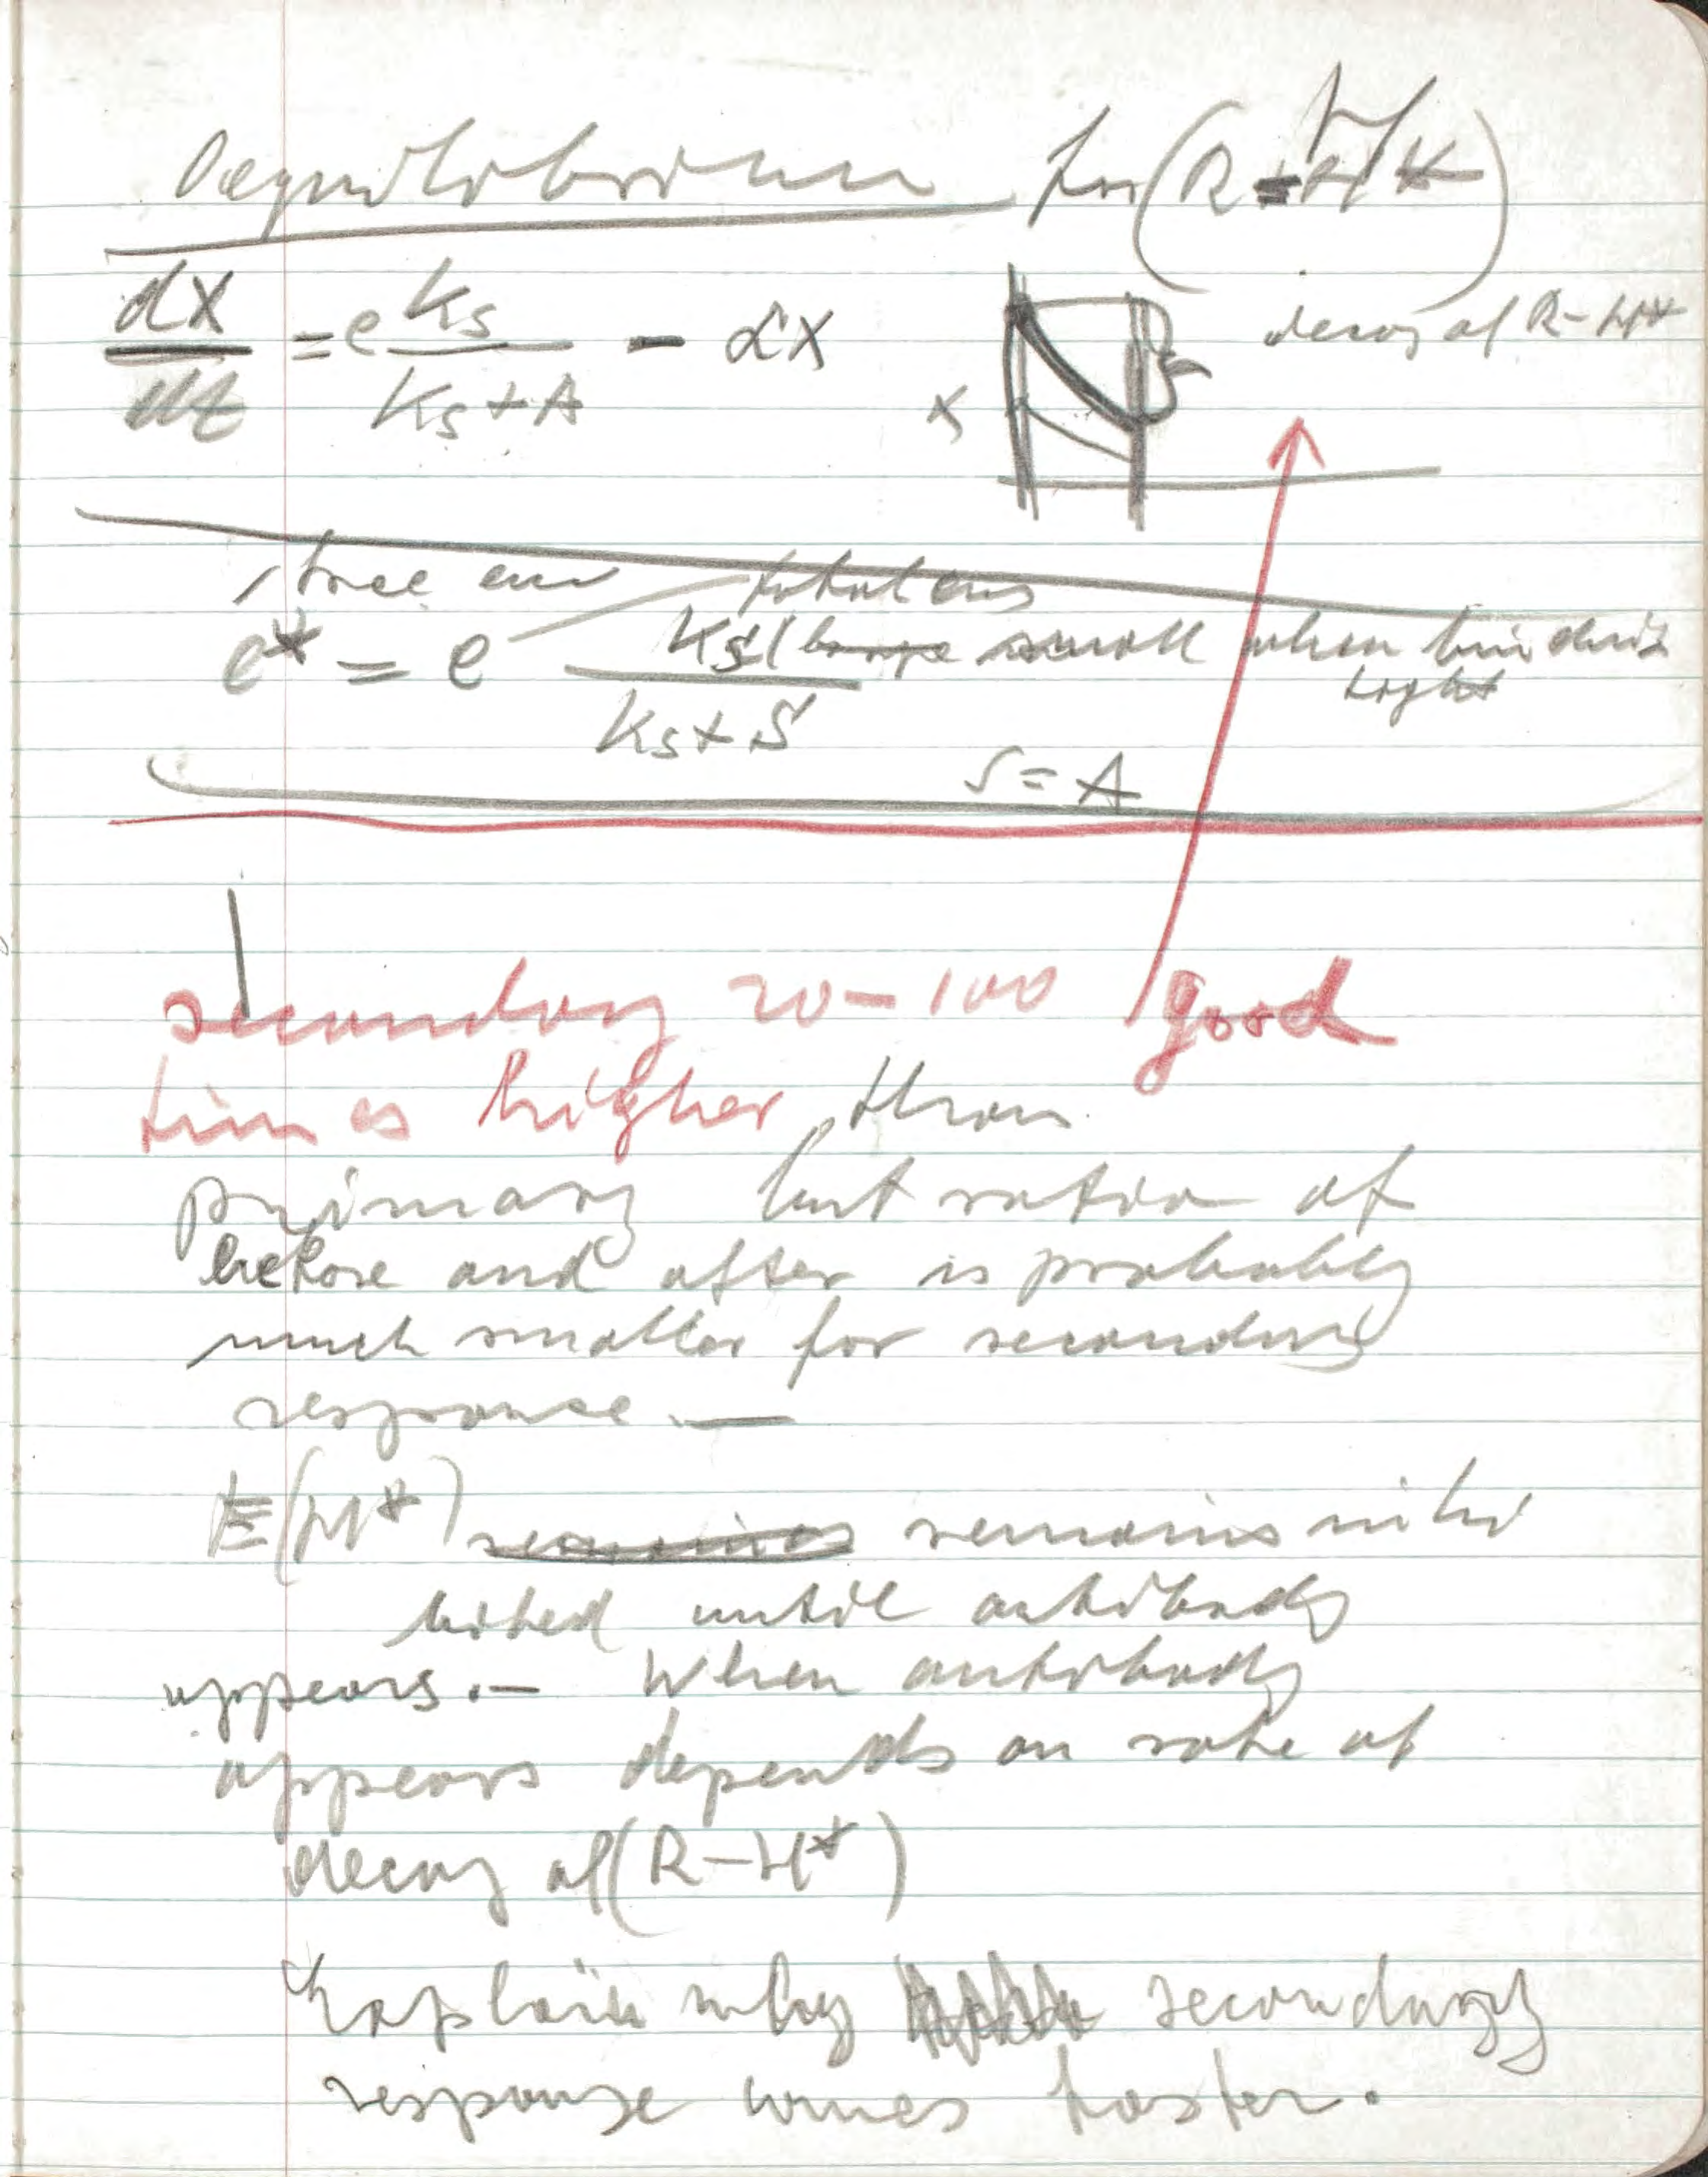 Aequilibrium for (R-H*)
dX/dt = e Ks/(Ks+A) - αX
x
decay of R-H*
free enz total enz
e* = e Ks/(Ks+S) (large small when binding tight
S = A
secondary 20-100 good
times higher than
primary but ratio of
before and after is probably
much smaller for secondary
response.—
E(H*) remains remains inhi
bited until antibody
appears.— When antibody
appears depends on rate of
decay of (R-H*)
Explain why secondary
response comes faster.